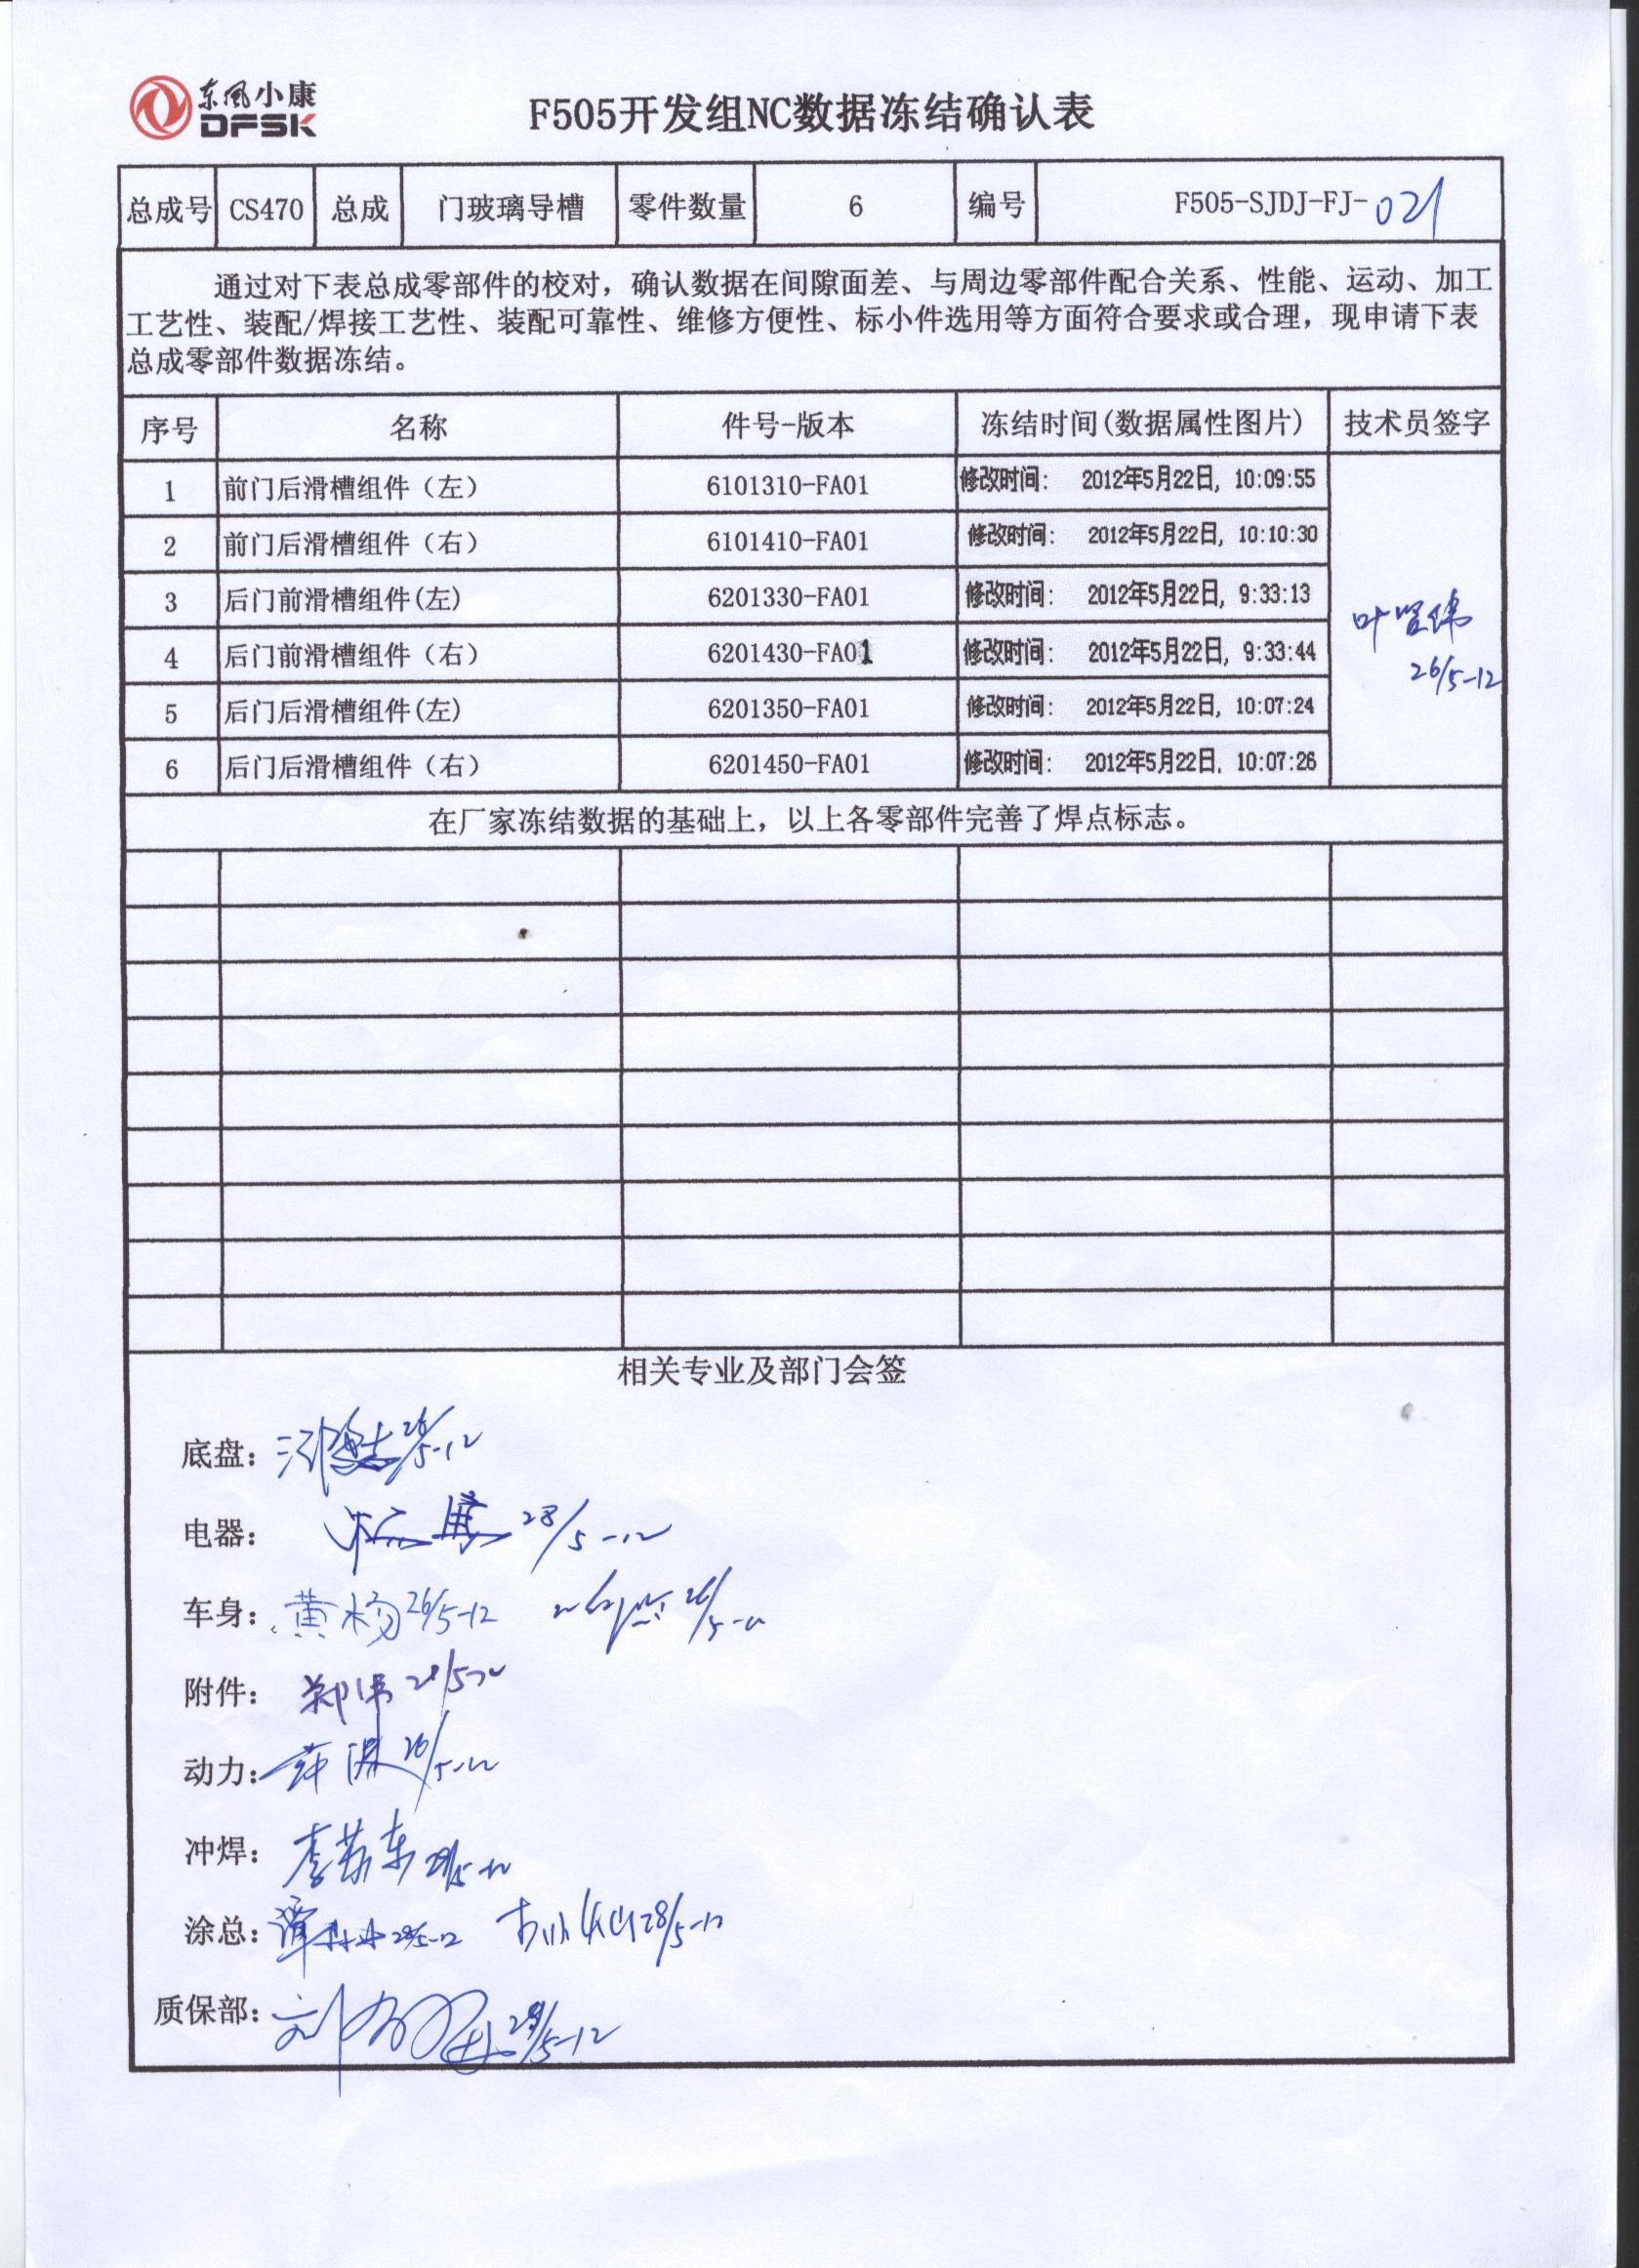 东风小康
DFSK
F505开发组NC数据冻结确认表
总成号 CS470 总成 门玻璃导槽 零件数量 6 编号 F505-SJDJ-FJ-021
通过对下表总成零部件的校对，确认数据在间隙面差、与周边零部件配合关系、性能、运动、加工
工艺性、装配/焊接工艺性、装配可靠性、维修方便性、标小件选用等方面符合要求或合理，现申请下表
总成零部件数据冻结。
序号 名称 件号-版本 冻结时间(数据属性图片) 技术员签字
1 前门后滑槽组件（左） 6101310-FA01 修改时间： 2012年5月22日, 10:09:55
2 前门后滑槽组件（右） 6101410-FA01 修改时间： 2012年5月22日, 10:10:30
3 后门前滑槽组件(左) 6201330-FA01 修改时间： 2012年5月22日, 9:33:13
4 后门前滑槽组件（右） 6201430-FA01 修改时间： 2012年5月22日, 9:33:44
5 后门后滑槽组件(左) 6201350-FA01 修改时间： 2012年5月22日, 10:07:24
6 后门后滑槽组件（右） 6201450-FA01 修改时间： 2012年5月22日, 10:07:26
26/5-12
在厂家冻结数据的基础上，以上各零部件完善了焊点标志。
相关专业及部门会签
底盘：
电器： 28/5-12
车身： 黄杨 26/5-12
附件：
动力：
冲焊：
涂总： 28/5-12 28/5-12
质保部： 28/5-12